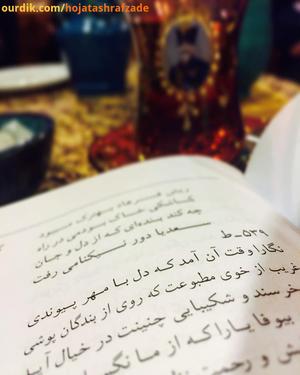 ourdik.com/hojatashrafzade
کاشکی خاک بودمی در راه
چه کند بنده‌ای که از دل و جان
سعدیا دور نیکنامی رفت
۵۳۹ــ ط
نگارا وقت آن آمد که دل با مهر پیوندی
غریب از خوی مطبوعت که روی از بندگان پوشی
خرسند و شکیبایی چنینت در خیال آید
بیوفا یارا که از ما
ش و رحمت